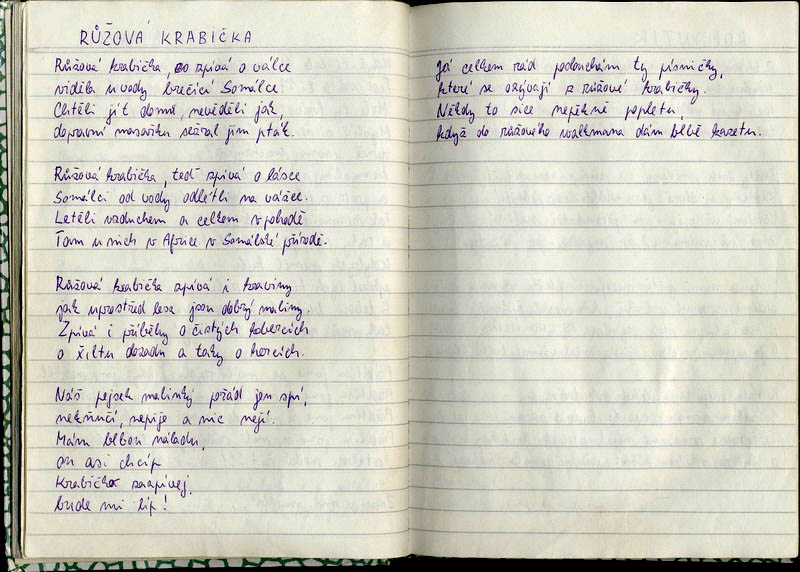 RŮŽOVÁ KRABIČKA
Růžová krabička, co zpívá o válce
viděla u vody brečící Somálce.
Chtěli jít domů, nevěděli jak,
dopravní mosazku sežral jim pták.
Růžová krabička, teď zpívá o lásce
Somálci od vody odlétli na vážce.
Letěli vzduchem a celkem v pohodě
Tam u nich v Africe v Somálské přírodě.
Růžová krabička zpívá i kraviny
jak uprostřed lesa jsou dobrý maliny.
Zpívá i příběhy o čistých kobercích
o kšiltu dozadu a taky o hercích.
Náš pejsek malinký pořád jen spí,
nekňučí, nepije a nic nejí.
Mám blbou náladu,
on asi chcíp
Krabičko zazpívej,
bude mi líp!
Já celkem rád poslouchám ty písničky,
které se ozývají z růžové krabičky.
Někdy to sice nepěkně popletu,
když do růžového walkmana dám blbě kazetu.